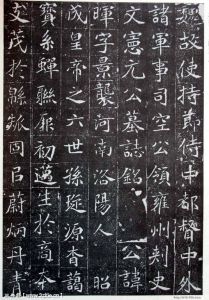 魏故使持節侍中都督中外
諸軍事司空公領雍州刾史
文憲元公墓誌銘 公諱
暉字景襲河南洛陽人昭
成皇帝之六世孫琁源杳藹
寶系蟬聯厥初邁生於商本
茂於緜瓞固㠯蔚炳丹青